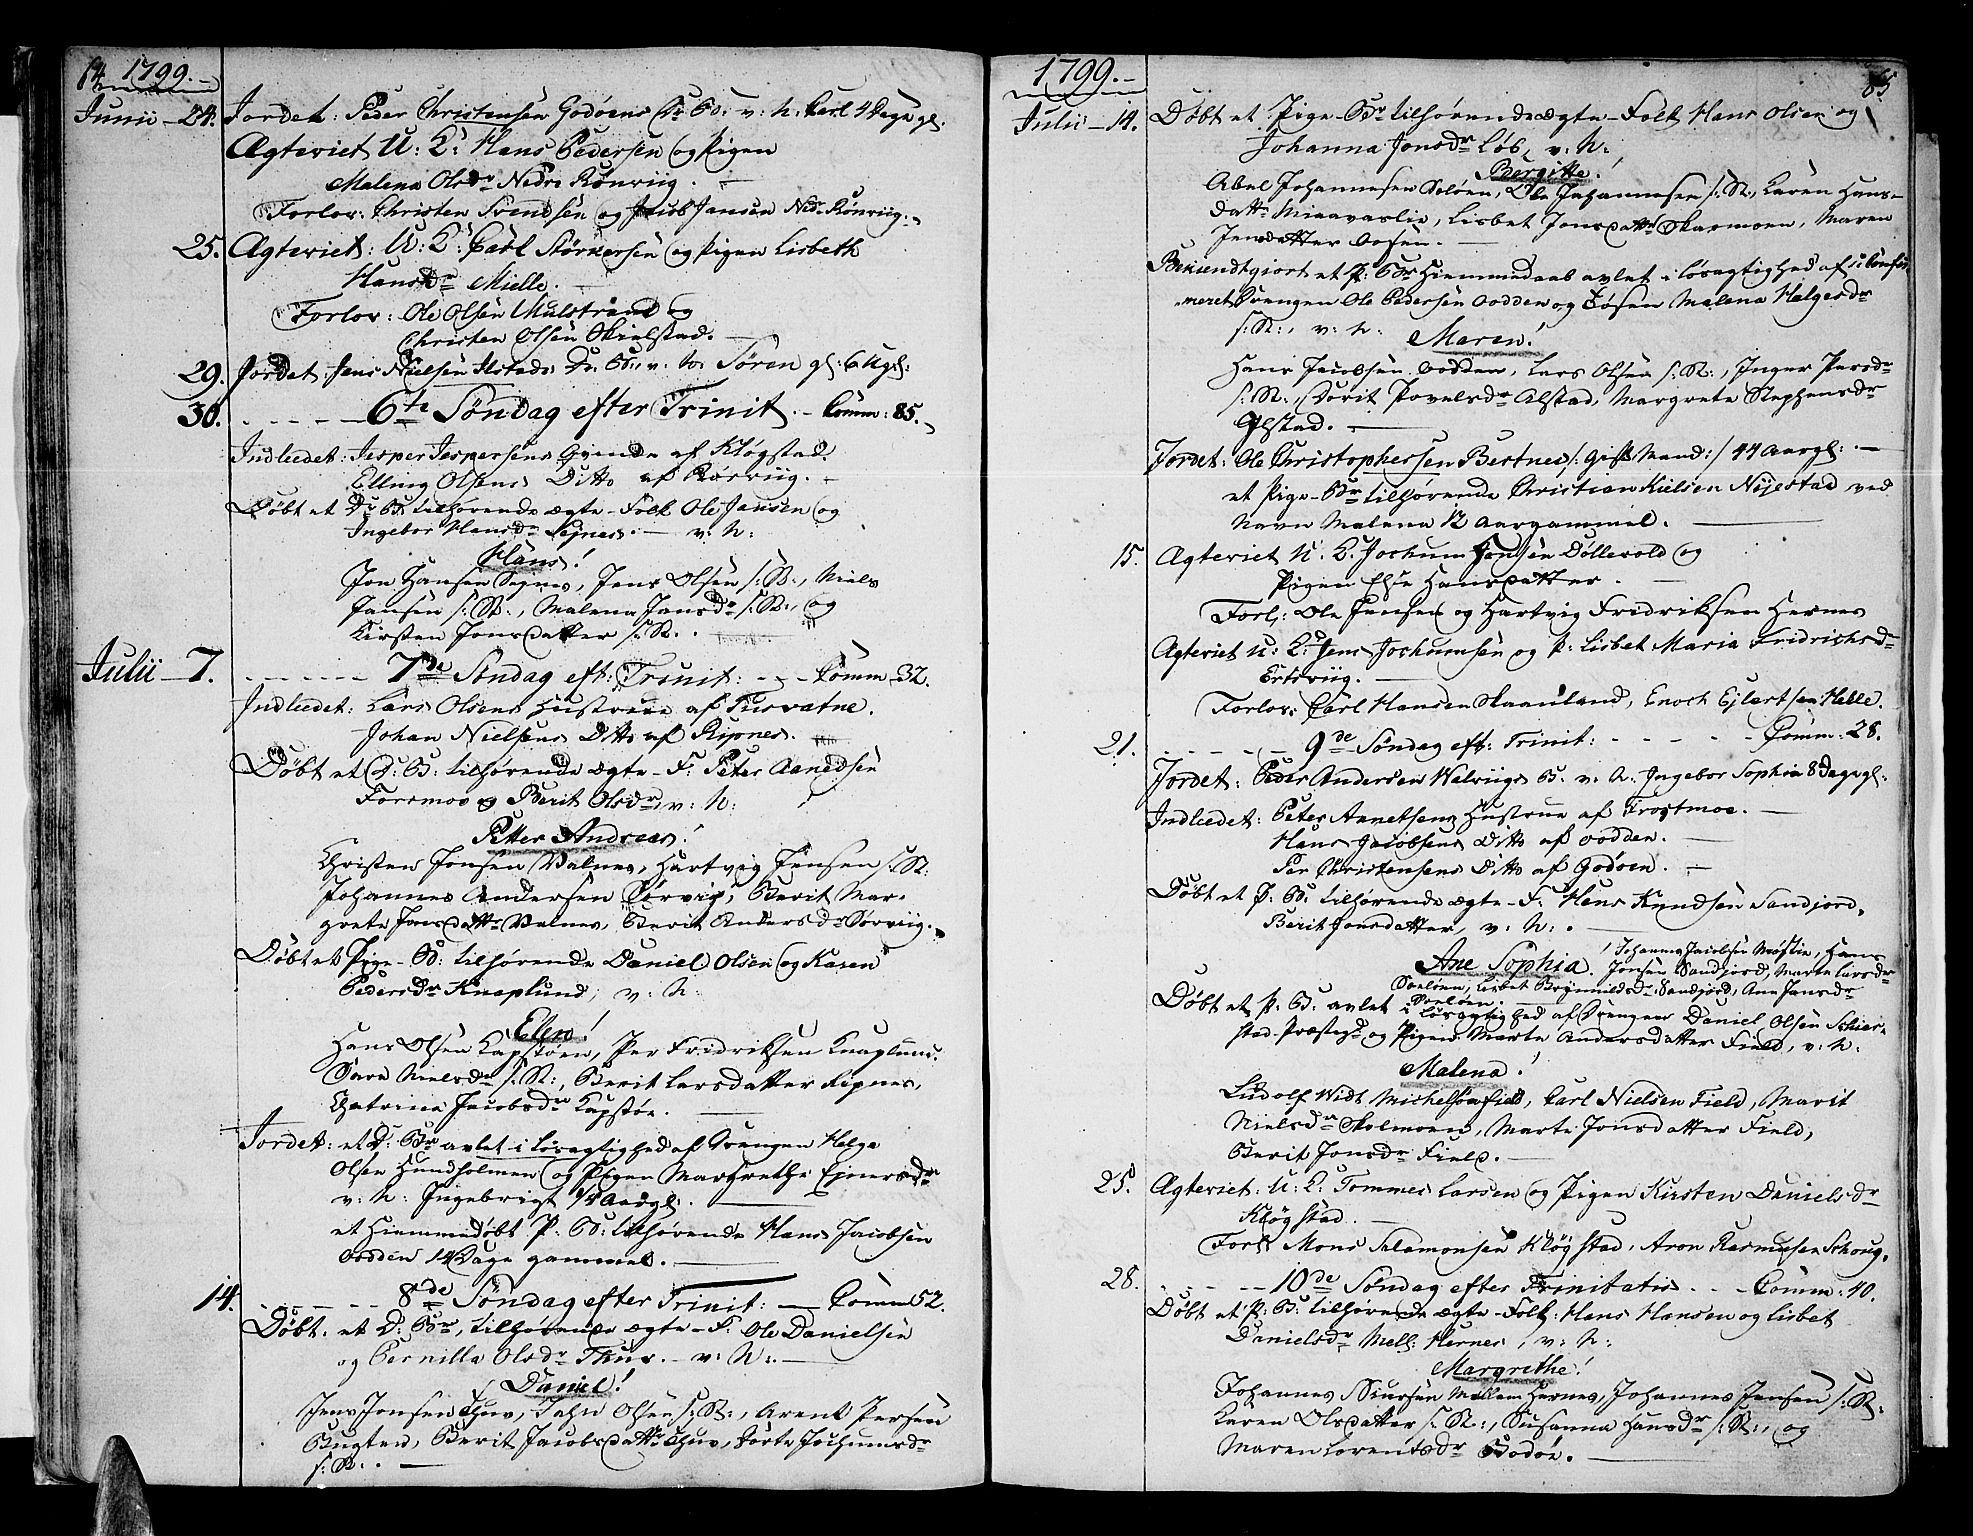 64 1799.
Junii - 24. Jordet: Peder Christensen Godøens D: B: v: N: Carl 4 Dage gl.
Ægteviet U: K: Hans Pedersen og Pigen
Malena Olsdr Nedre Rønviig.
Forlov: Christen Svendsen og Jacob Jansen Nedr Rønviig.
25. Ægteviet: U: K: Carl Størkersen og Pigen Lisbeth
Hansdr Mielle.
Forlov: Ole Olsen Mulstrand og
Christen Olsen Skielstad.
29. Jordet: Jens Nielsen Alstads D: B: v: N: Søren gl: 6 Ugl:
30. - - - - 6te Søndag efter Trinit. - Comm: 85.
Indledet: Jesper Jespersens Qvinde af Kløgstad.
Elling Olsens Ditto af Rørviig.
Døbt et D: B: tilhørende ægte-Folk Ole Jansen og
Ingebor Hansdr Seines. - v: N:
Hans!
Jon Hansen Segnes, Jens Olsen s: St:, Niels
Jansen s: St:, Malena Jansdr s: St:, og
Kirsten Jonsdatter s: St:.
Julii - 7. - - - - 7de Søndag eft: Trinit: - - Comm 32.
Indledet: Lars Olsens Hustrue af Tusvatne.
Johan Nielsens Ditto af Ripnes.
Døbt et D: B: tilhørende ægte-F: Peter Aanedsen
Forsmoe og Berit Olsdr, v: N:
Petter Andreas!
Christen Jonsen Valnes, Hartvig Jensen s: St:
Johannes Andersen Sørviig, Berit Mar-
grete Jonsdattr Valnes, Berit Andersdr Sørviig.
Døbt et Pige-B: tilhørende Daniel Olsen og Karen
Pedersdr Knaplund, v: N:
Elen!
Hans Olsen Kapstøen, Per Fridriksen Knaplund.
Sara Nielsdr s: St:, Berit Larsdatter Ripnes,
Chatrina Jacobsdr Kapstøe.
Jordet: et D: Br avlet i Løsagtighed af Drengen Helge
Olsen Hundholmen og Pigen Margrethe Ejnersdr
v: N: Ingebrigt 1/4 Aargl:
et Hiemmedøbt P: B: tilhørende Hans Jacobsen
Vodden 14 Dage gammel.
14. - - - - 8de Søndag efter Trinit: - Comm 52.
Døbt: et D: Br, tilhørende ægte-F: Ole Danielsen
og Pernilla Olsdr Thuv. - v: N:
Daniel!
Jens Jonsen Thuv, Jahn Olsen s: St:, Arent Persen
Bugten, Berit Jacobsdattr Thuv, Dorte Jochumsdr
s: St:.
1799. 65
Julii - 14. Døbt et Pige-Br tilhørende ægte-Folk Hans Olsen og
Johanna Jonsdr Løb, v: N:
Bergitte!
Abel Johannesen Soløen, Ole Johannesen s: St:, Karen Hans-
dattr Mioavaslie, Lisbet Jonsdattr Skarmoen, Maren
Jensdatter Vosen.
Bekiendtgiort et P: Br Hiemmedaab avlet i Løsagtighed af u:Confir-
meret Drengen Ole Pedersen Vodden og Tøsen Malena Helgesdr
s: St:, v: N:
Maren!
Hans Jacobsen Vodden, Lars Olsen s: St:, Inger Persdr
s: St:, Dorit Povelsdr Alstad, Margrete Stephensdr
Alstad.
Jordet: Ole Christophersen Bertnes /: gift Mand :/ 44 Aargl:
et Pige-Br tilhørende Christian Kielsen Nyestad ved
Navn Malena 12 Aargammel.
15. Ægteviet U. K. Jochum Jonsen Døllevold og
Pigen Else Hansdatter.
Forl: Ole Jensen og Hartvig Fridriksen Hernes
Ægteviet U: K: Jens Jochumsen og P: Lisbet Maria Fridrichsdr
Ertsviig.
Forlov: Carl Hansen Skaanland, Enoch Ejlertsen Helle.
21. - - - - 9de Søndag eft: Trinit: - - - - Comm: 28.
Jordet: Peder Andersen Walviigs B. v: N: Ingebor Sophia 8 Dage gl:
Indledet: Peter Annetsens Hustrue af Frostmoe.
Hans Jacobsens Ditto af Vodden.
Per Christensens Ditto af Godøen.
Døbt et P: B: tilhørende ægte-F: Hans Knudsen Sandjord,
Berit Jonsdatter, v: N:
Ane Sophia! Johannes Jacobsen Moslie, Hans
Jonsen Sandjord, Marte Larsdr
Soeløen, Lisbet Brynnildsdr Sandjord, Ane Jansdr
Soeløen.
Døbt et P: B: avlet i Løsagtighed af Drengen Daniel Olsen Schier-
stad Præstegd og Pigen Marte Andersdatter Field, v: N:
Malena!
Ludolf Widt Michelsen Field, Carl Nielsen Field, Marit
Nielsdr Skolmoen, Marte Jonsdatter Field,
Berit Jonsdr Field.
25. Ægteviet: U: K: Tommes Larsen og Pigen Kirsten Danielsdr
Kløgstad.
Forl: Mons Salamonsen Kløgstad, Aron Rasmusen Schoug.
28. - - - - 10de Søndag efter Trinitatis - - - Comm: 40.
Døbt et P: B: tilhørende ægte-Folk: Hans Hansen og Lisbet
Danielsdr Mell: Hernes, v: N:
Margrethe!
Johannes Siursen Mellem Hernes, Johannes Jensen s: St:
Karen Olsdatter s: St:, Susanna Hansdr s: St:, og
Maren Lorentsdr Bodøe.